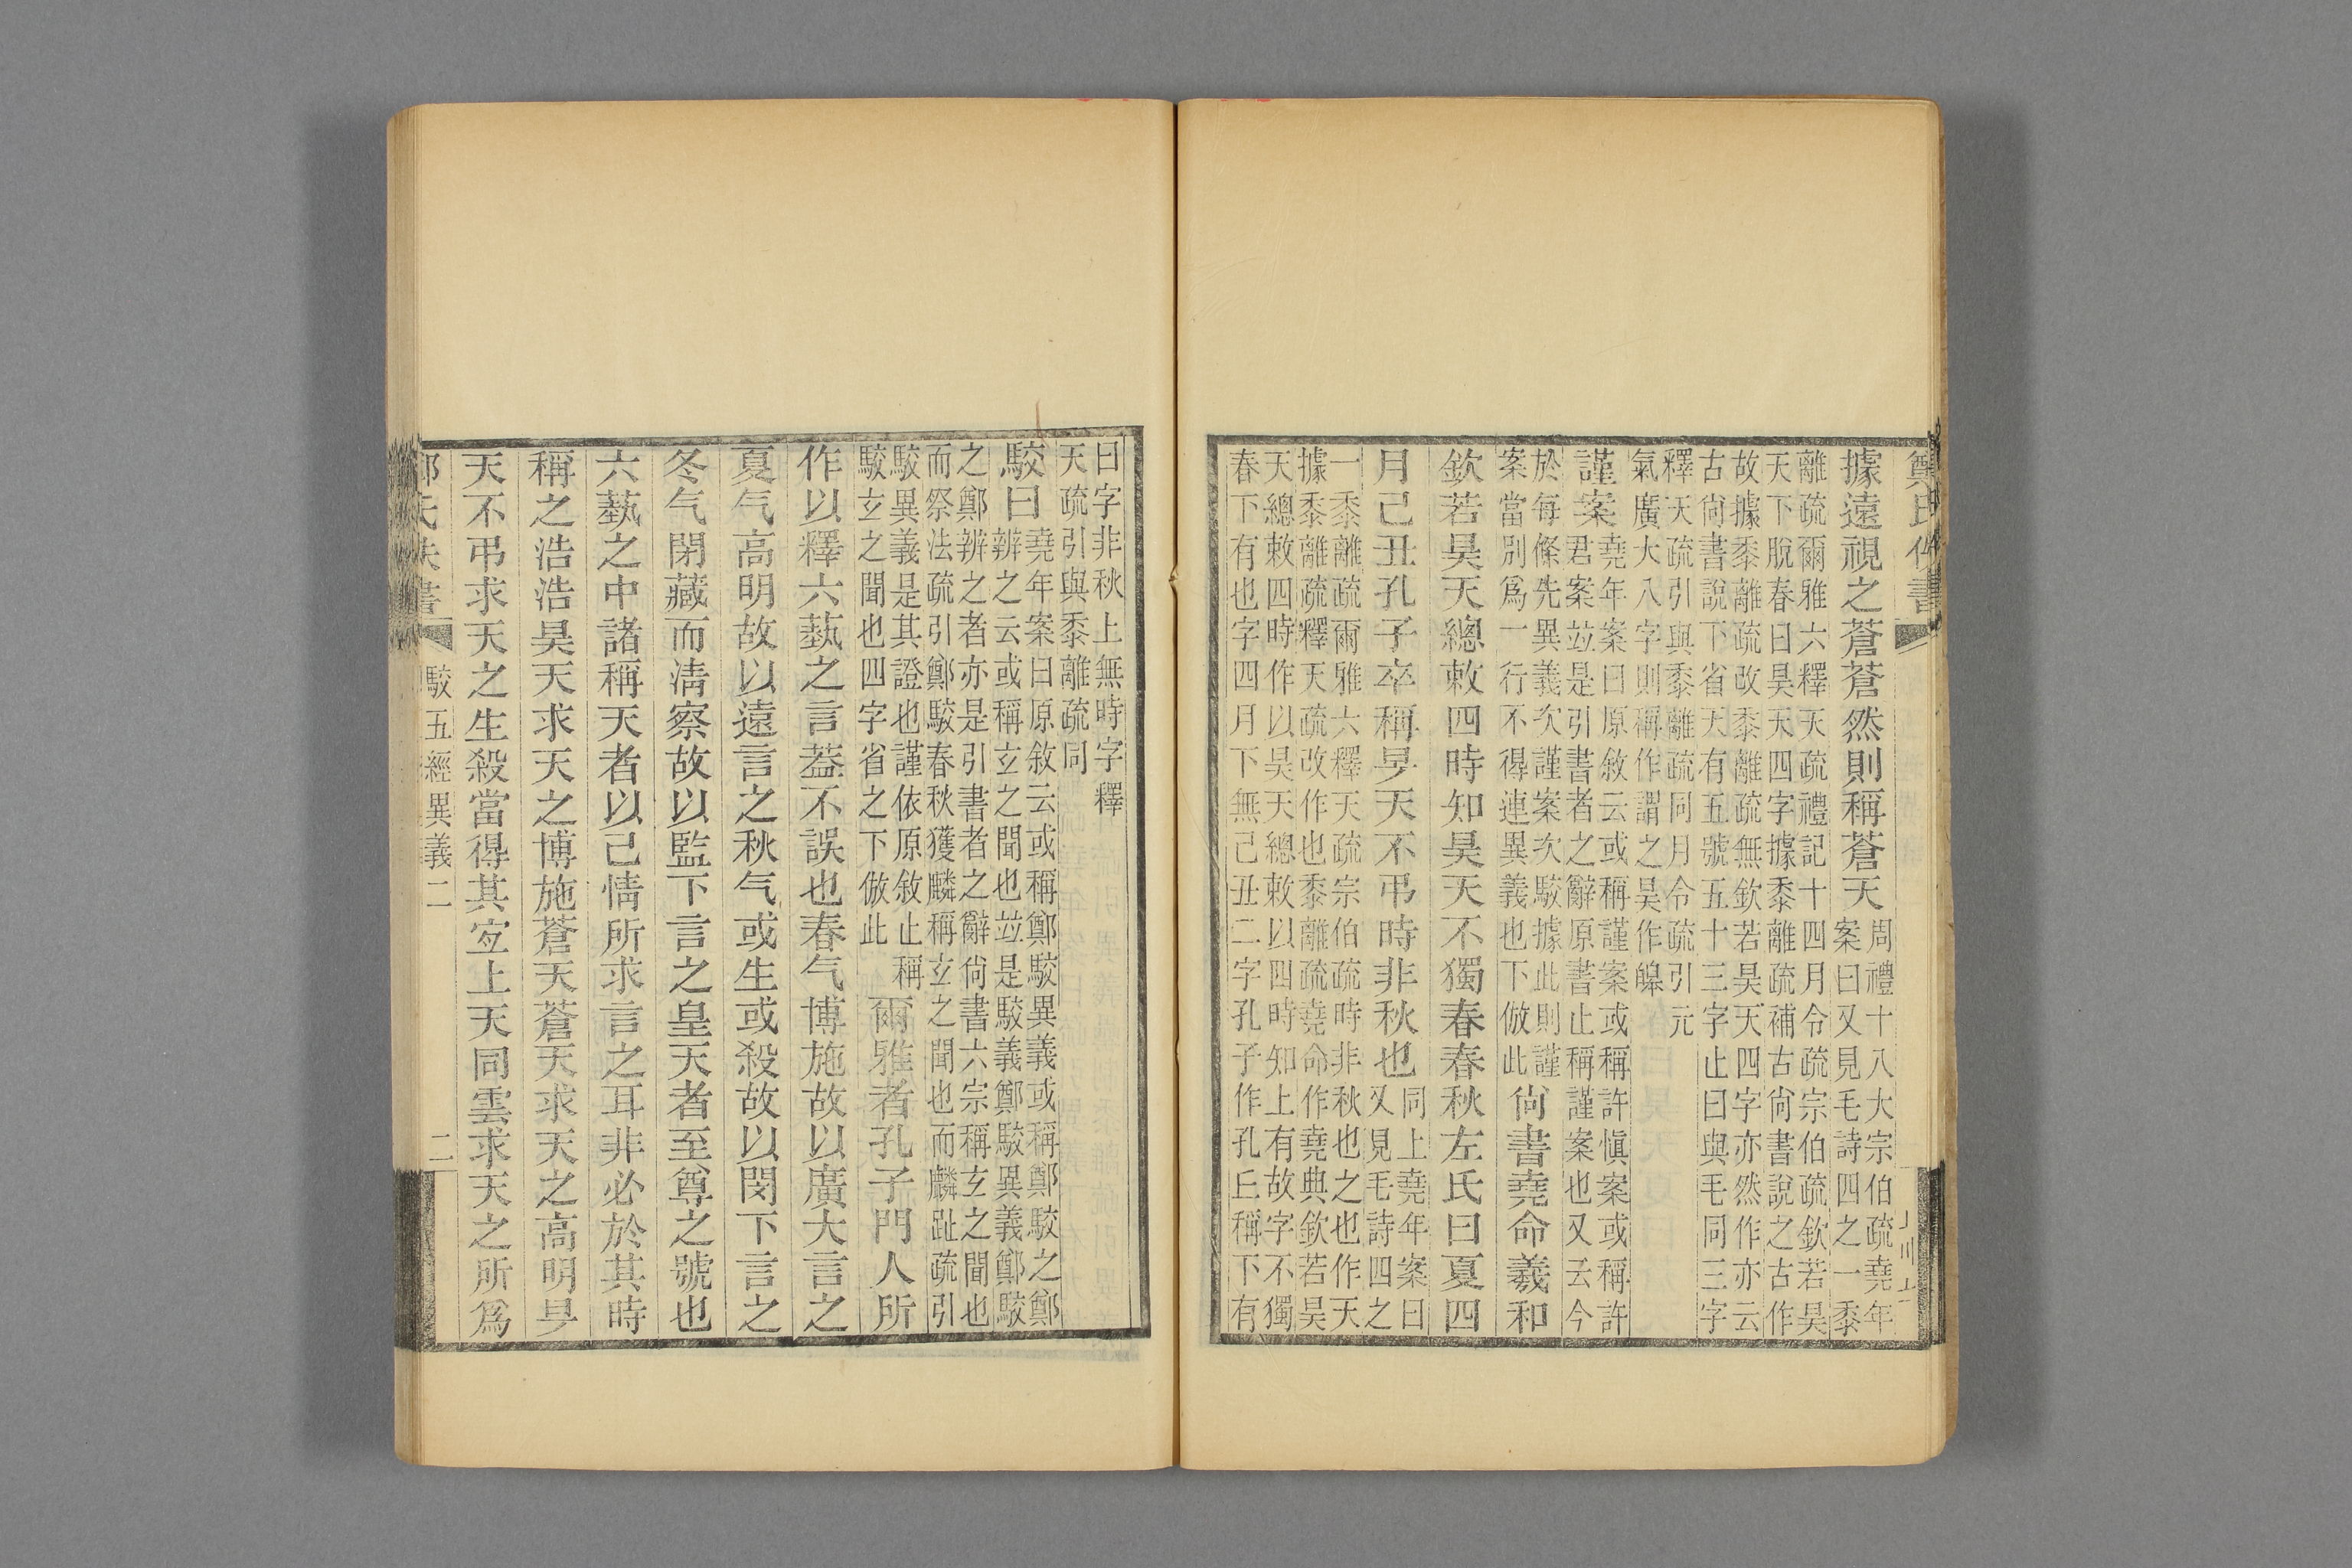 鄭氏佚書
據遠視之蒼蒼然則稱蒼天
周禮十八大宗伯疏堯年
案曰又見毛詩四之一黍
離疏爾雅六釋天疏禮記十四月令疏宗伯疏欽若昊
天下脫春曰昊天四字據黍離疏補古尙書說之古作
故據黍離疏改黍離疏無欽若昊天四字亦然作亦云
古尙書說下省天有五號五十三字止曰與毛同三字
釋天疏引與黍離疏同月令疏引元
氣廣大八字則稱作謂之昊作皞
謹案
堯年案曰原敘云或稱謹案或稱許愼案或稱許
君案竝是引書者之辭原書止稱謹案也又云今
於每條先異義次謹案次駮據此則謹
案當別爲一行不得連異義也下倣此
尙書堯命羲和
欽若昊天總敕四時知昊天不獨春春秋左氏曰夏四
月己丑孔子卒稱旻天不弔時非秋也
同上堯年案曰
又見毛詩四之
一黍離疏爾雅六釋天疏宗伯疏時非秋也之也作天
據黍離疏釋天疏改作也黍離疏堯命作堯典欽若昊
天總敕四時作以昊天總敕以四時知上有故字不獨
春下有也字四月下無己丑二字孔子作孔丘稱下有
曰字非秋上無時字釋
天疏引與黍離疏同
駮曰
堯年案曰原敘云或稱鄭駮異義或稱鄭駮之鄭
辨之云或稱玄之聞也竝是駮義鄭駮異義鄭駮
之鄭辨之者亦是引書者之辭尙書六宗稱玄之聞也
而祭法疏引鄭駮春秋獲麟稱玄之聞也而麟趾疏引
駮異義是其證也謹依原敘止稱
駮玄之聞也四字省之下倣此
爾雅者孔子門人所
作以釋六蓺之言葢不誤也春气博施故以廣大言之
夏气高明故以遠言之秋气或生或殺故以閔下言之
冬气閉藏而淸察故以監下言之皇天者至尊之號也
六蓺之中諸稱天者以己情所求言之耳非必於其時
稱之浩浩昊天求天之博施蒼天蒼天求天之高明旻
天不弔求天之生殺當得其宐上天同雲求天之所爲
駮五經異義二
二